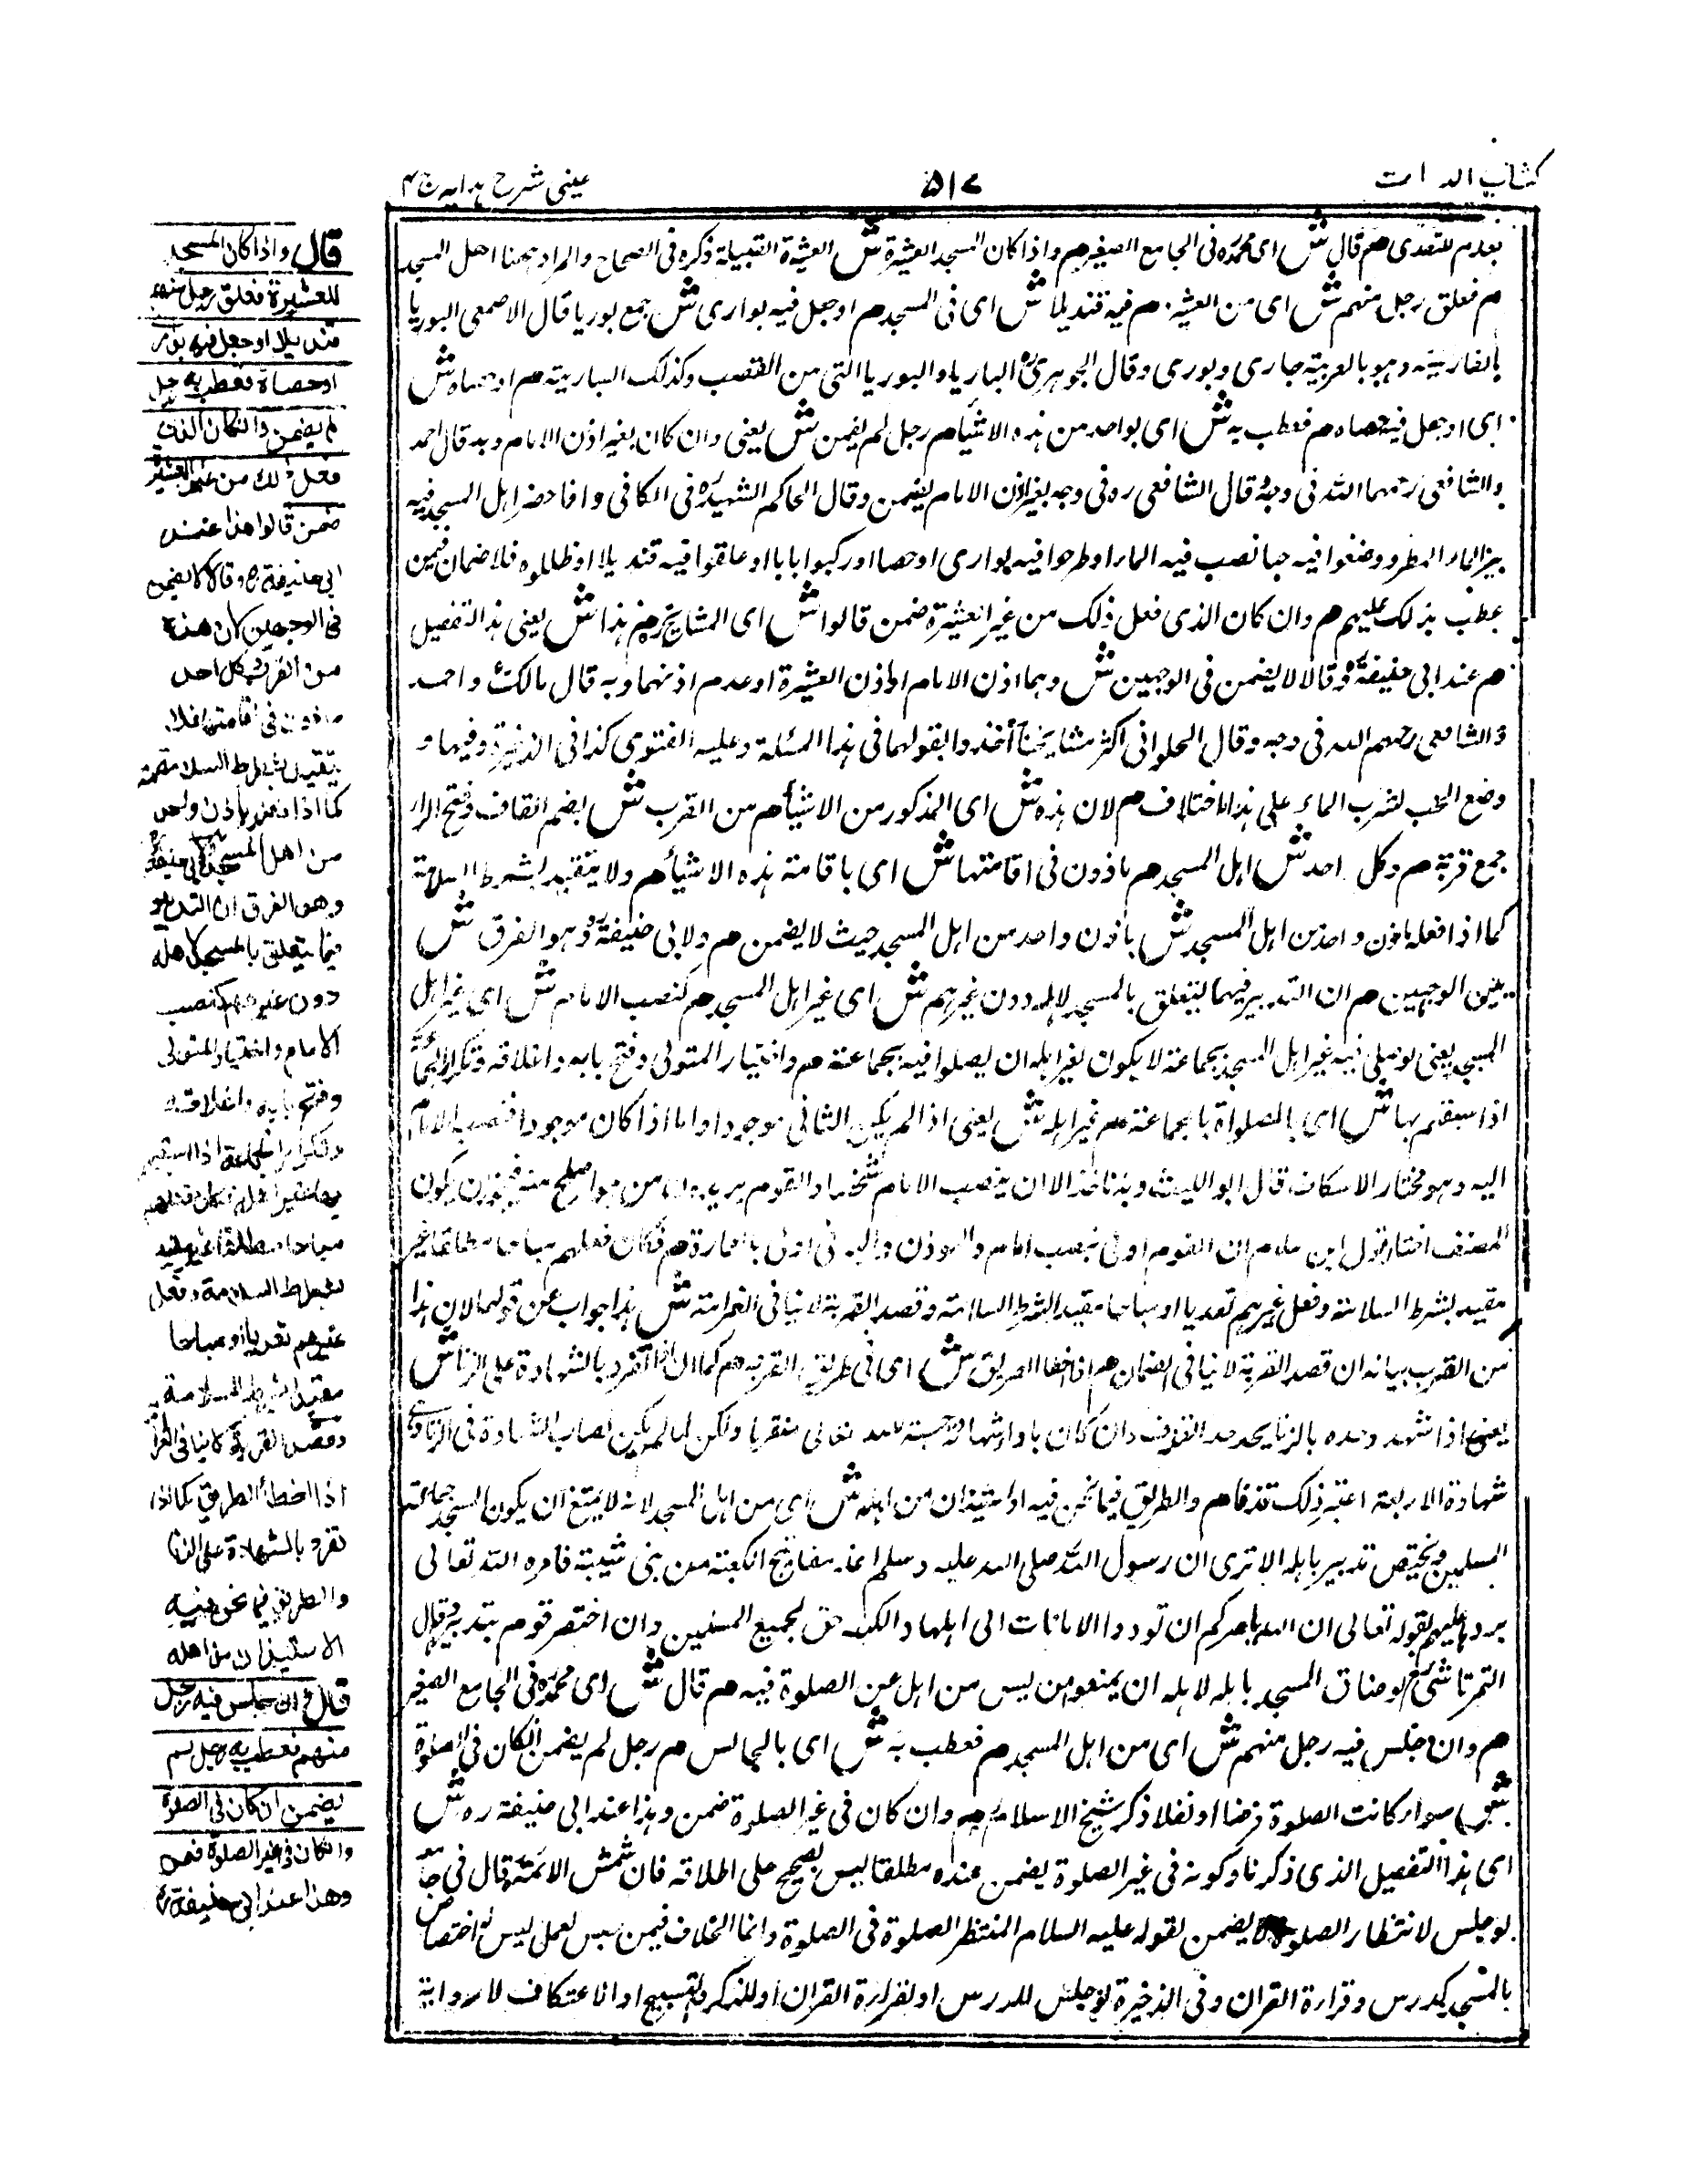 كتاب الديات
٥١٧
عينى شرح هدايه ج ٤
بعدم للتعدى هم قال ش اى محمدؒ فى الجامع الصغير هم واذا كان المسجد للعشيرة ش العشيرة القبيلة ذكره فى الصحاح والمراد ههنا اهل المسجد
م فعلق رجل منهم ش اى من العشيرة هم فيه قنديلا ش اى فى المسجد هم او جعل فيه بوارى ش جمع بوريا قال الاصمعى البوريا
بالفارسية وهو بالعربية بارى وبورى وقال الجوهرىؒ البارياء والبورياء التى من القصب وكذلك البارية هم او حصاه ش
اى او جعل فيه حصاه هم فعطب به ش اى بواحد من هذه الاشياء هم رجل لم يضمن ش يعنى وان كان بغير اذن الامام وبه قال احمد
والشافعى رحمهما الله فى وجه وقال الشافعى ره فى وجه بغير اذن الامام يضمن وقال الحاكم الشهيدؒ فى الكافى واذا حضر اهل المسجد فيه
بير الماء المطر ووضعوا فيه حبا نصب فيه الماء او طرحوا فيه بوارى او حصا او ركبوا بابا او علقوا فيه قنديلا او ظللوه فلا ضمان فيمن
عطب بذلك عليهم هم وان كان الذى فعل ذلك من غير العشيرة ضمن قالوا ش اى المشايخ هم هذا ش يعنى هذا التفصيل
هم عند ابى حنيفةؒ وقالا لا يضمن فى الوجهين ش وهما اذن الامام او اذن العشيرة او عدم اذنهما وبه قال مالك واحمد
والشافعى رحمهم الله فى وجه وقال الحلوانى اكثر مشايخنا أخذوا بقولهما فى هذه المسئلة وعليه الفتوى كذا فى الذخيرة وفيها و
وضع الحب لشرب الماء على هذا الاختلاف هم لان هذه ش اى المذكور من الاشياء هم من القرب ش بضم القاف وفتح الراء
جمع قربة هم وكل احد ش اهل المسجد هم ماذون فى اقامتها ش اى باقامة هذه الاشياء هم ولا يتقيد بشرط السلامة
كما اذا فعله باذن واحد من اهل المسجد ش باذن واحد من اهل المسجد حيث لا يضمن هم ولابى حنيفةؒ وهو الفرق ش
بين الوجهين هم ان التدبير فيما يتعلق بالمسجد لاهله دون غيرهم ش اى غير اهل المسجد هم كنصب الامام ش اى غير اهل
المسجد يعنى لو صلى فيه غير اهل المسجد بجماعة لا يكون لغير اهله ان يصلوا فيه بجماعة هم واختيار المتولى وفتح بابه واغلاقه وتكرار الجماعة
اذا سبقهم بها ش اى بالصلواة بالجماعة هم غير اهله ش يعنى اذا لم يكن الثانى موجودا واما اذا كان موجودا فنصب الامام
اليه وهو مختار الاسكاف قال ابو الليث وبه ناخذ الا ان ينصب الامام شخصا والقوم يريدون من هو اصلح منه فيجوز ان يكون
المصنف اختار قول ابن سلام ان القوم اولى بنصب الامام والموذن وابيه فى اولى بالعمارة هم فكان فعلهم مباحا مطلقا غير
مقيد بشرط السلامة وفعل غيرهم تعديا او مباحا مقيد بشرط السلامة وقصد القربة لا ينافى الغرامة ش هذا جواب عن قولهما لان هذا
من القرب بيانه ان قصد القربة لا ينافى الضمان هم اذا اخطا الطريق ش اى فى طريق القربة هم كما اذا انفرد بالشهادة على الزنا ش
يعنى اذا شهد وحده بالزنا يحد حد القذف وان كان باداء شهادته حسبة لله تعالى متقربا ولكن لما لم يكن نصاب الشهادة فى الزنا وهى
شهادة الاربعة اعتبر ذلك قذفا هم والطريق فيما نحن فيه الاستيذان من اهله ش اى من اهل المسجد لانه لا يمتنع ان يكون المسجد لعامة
المسلمين ويختص تدبيره باهله الا ترى ان رسول الله صلى الله عليه وسلم اخذ مفاتيح الكعبة من بنى شيبة فامره الله تعالى
بردها اليهم لقوله تعالى ان الله يامركم ان تودوا الامانات الى اهلها والكعبة حق لجميع المسلمين وان اختص قوم بتدبيره قال
التمرتاشىؒ لو ضاق المسجد باهله لاهله ان يمنعوا من ليس من اهل عن الصلوة فيه هم قال ش اى محمدؒ فى الجامع الصغير
هم وان جلس فيه رجل منهم ش اى من اهل المسجد هم فعطب به ش اى بالجالس هم رجل لم يضمن ان كان فى الصلوة
ش سواء كانت الصلوة فرضا او نفلا ذكر شيخ الاسلام هم وان كان فى غير الصلوة ضمن وهذا عند ابى حنيفة ره ش
اى هذا التفصيل الذى ذكرنا وكونه فى غير الصلوة يضمن عنده مطلقا ليس بصحيح على اطلاقه فان شمس الائمة قال فى جامعه
لو جلس لانتظار الصلوة لا يضمن لقوله عليه السلام المنتظر للصلوة فى الصلوة وانما الخلاف فيمن جلس لعمل ليس له اختصاص
بالمسجد كدرس وقراءة القران وفى الذخيرة لو جلس للدرس او لقراءة القران او للذكر والتسبيح او الاعتكاف لا رواية
قال واذا كان المسجد
للعشيرة فعلق رجل منهم
قنديلا او جعل فيه بوارى
او حصاة فعطب به رجل
لم يضمن وان كان الذى
فعل ذلك من غير العشيرة
ضمن قالوا هذا عند
ابى حنيفةؒ وقالا لا يضمن
فى الوجهين لان هذه
من القرب وكل احد
ماذون فى اقامتها فلا
يتقيد بشرط السلامة
كما اذا فعله باذن واحد
من اهل المسجد ولابى حنيفةؒ
وهو الفرق ان التدبير
فيما يتعلق بالمسجد لاهله
دون غيرهم كنصب
الامام واختيار المتولى
وفتح بابه واغلاقه
وتكرار الجماعة اذا سبقهم
بها غير اهله فكان فعلهم
مباحا مطلقا غير مقيد
بشرط السلامة وفعل
غيرهم تعديا او مباحا
مقيدا بشرط السلامة
وقصد القربة لا ينافى الغرامة
اذا اخطأ الطريق كما اذا
تفرد بالشهادة على الزنا
والطريق فيما نحن فيه
الاستيذان من اهله
قال وان جلس فيه رجل
منهم فعطب به رجل لم
يضمن ان كان فى الصلوة
وان كان فى غير الصلوة ضمن
وهذا عند ابى حنيفةؒ